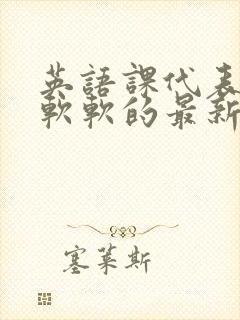 英語課代表
軟軟的最新
塞萊斯